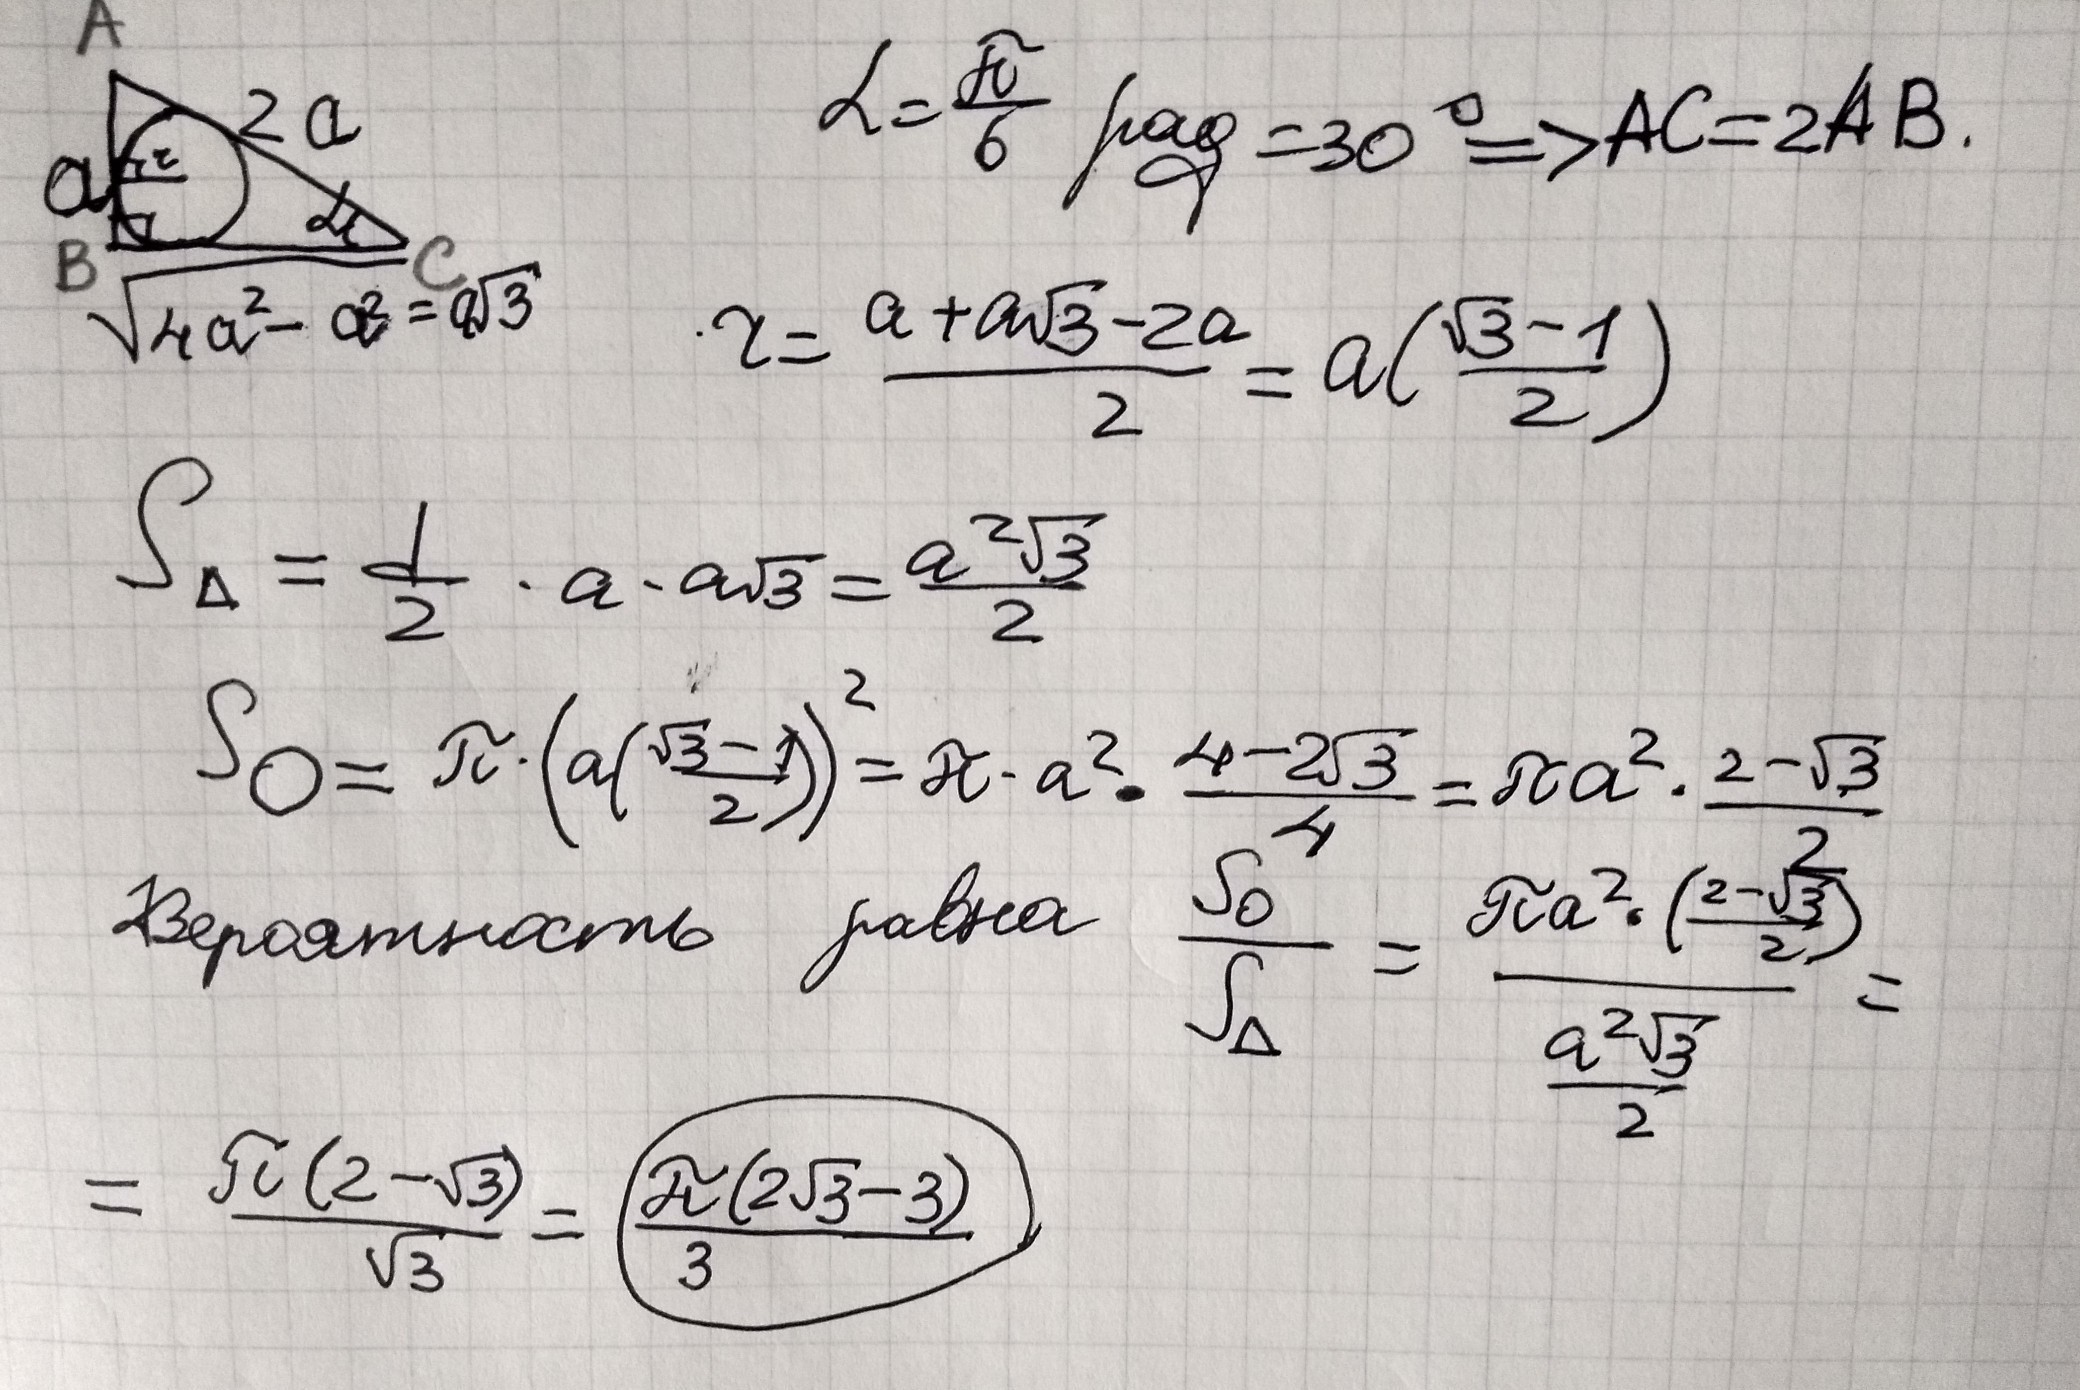 A
2a
a
r
α
B
C
√(4a² - a²) = a√3
α = π/6 рад = 30° => AC = 2AB.
r = (a + a√3 - 2a)/2 = a((√3 - 1)/2)
S△ = 1/2 · a · a√3 = a²√3/2
S○ = π · (a((√3 - 1)/2))² = π · a² · (4 - 2√3)/4 = πa² · (2 - √3)/2
Вероятность равна S○/S△ = (πa² · ((2 - √3)/2))/(a²√3/2) =
= π(2 - √3)/√3 = π(2√3 - 3)/3